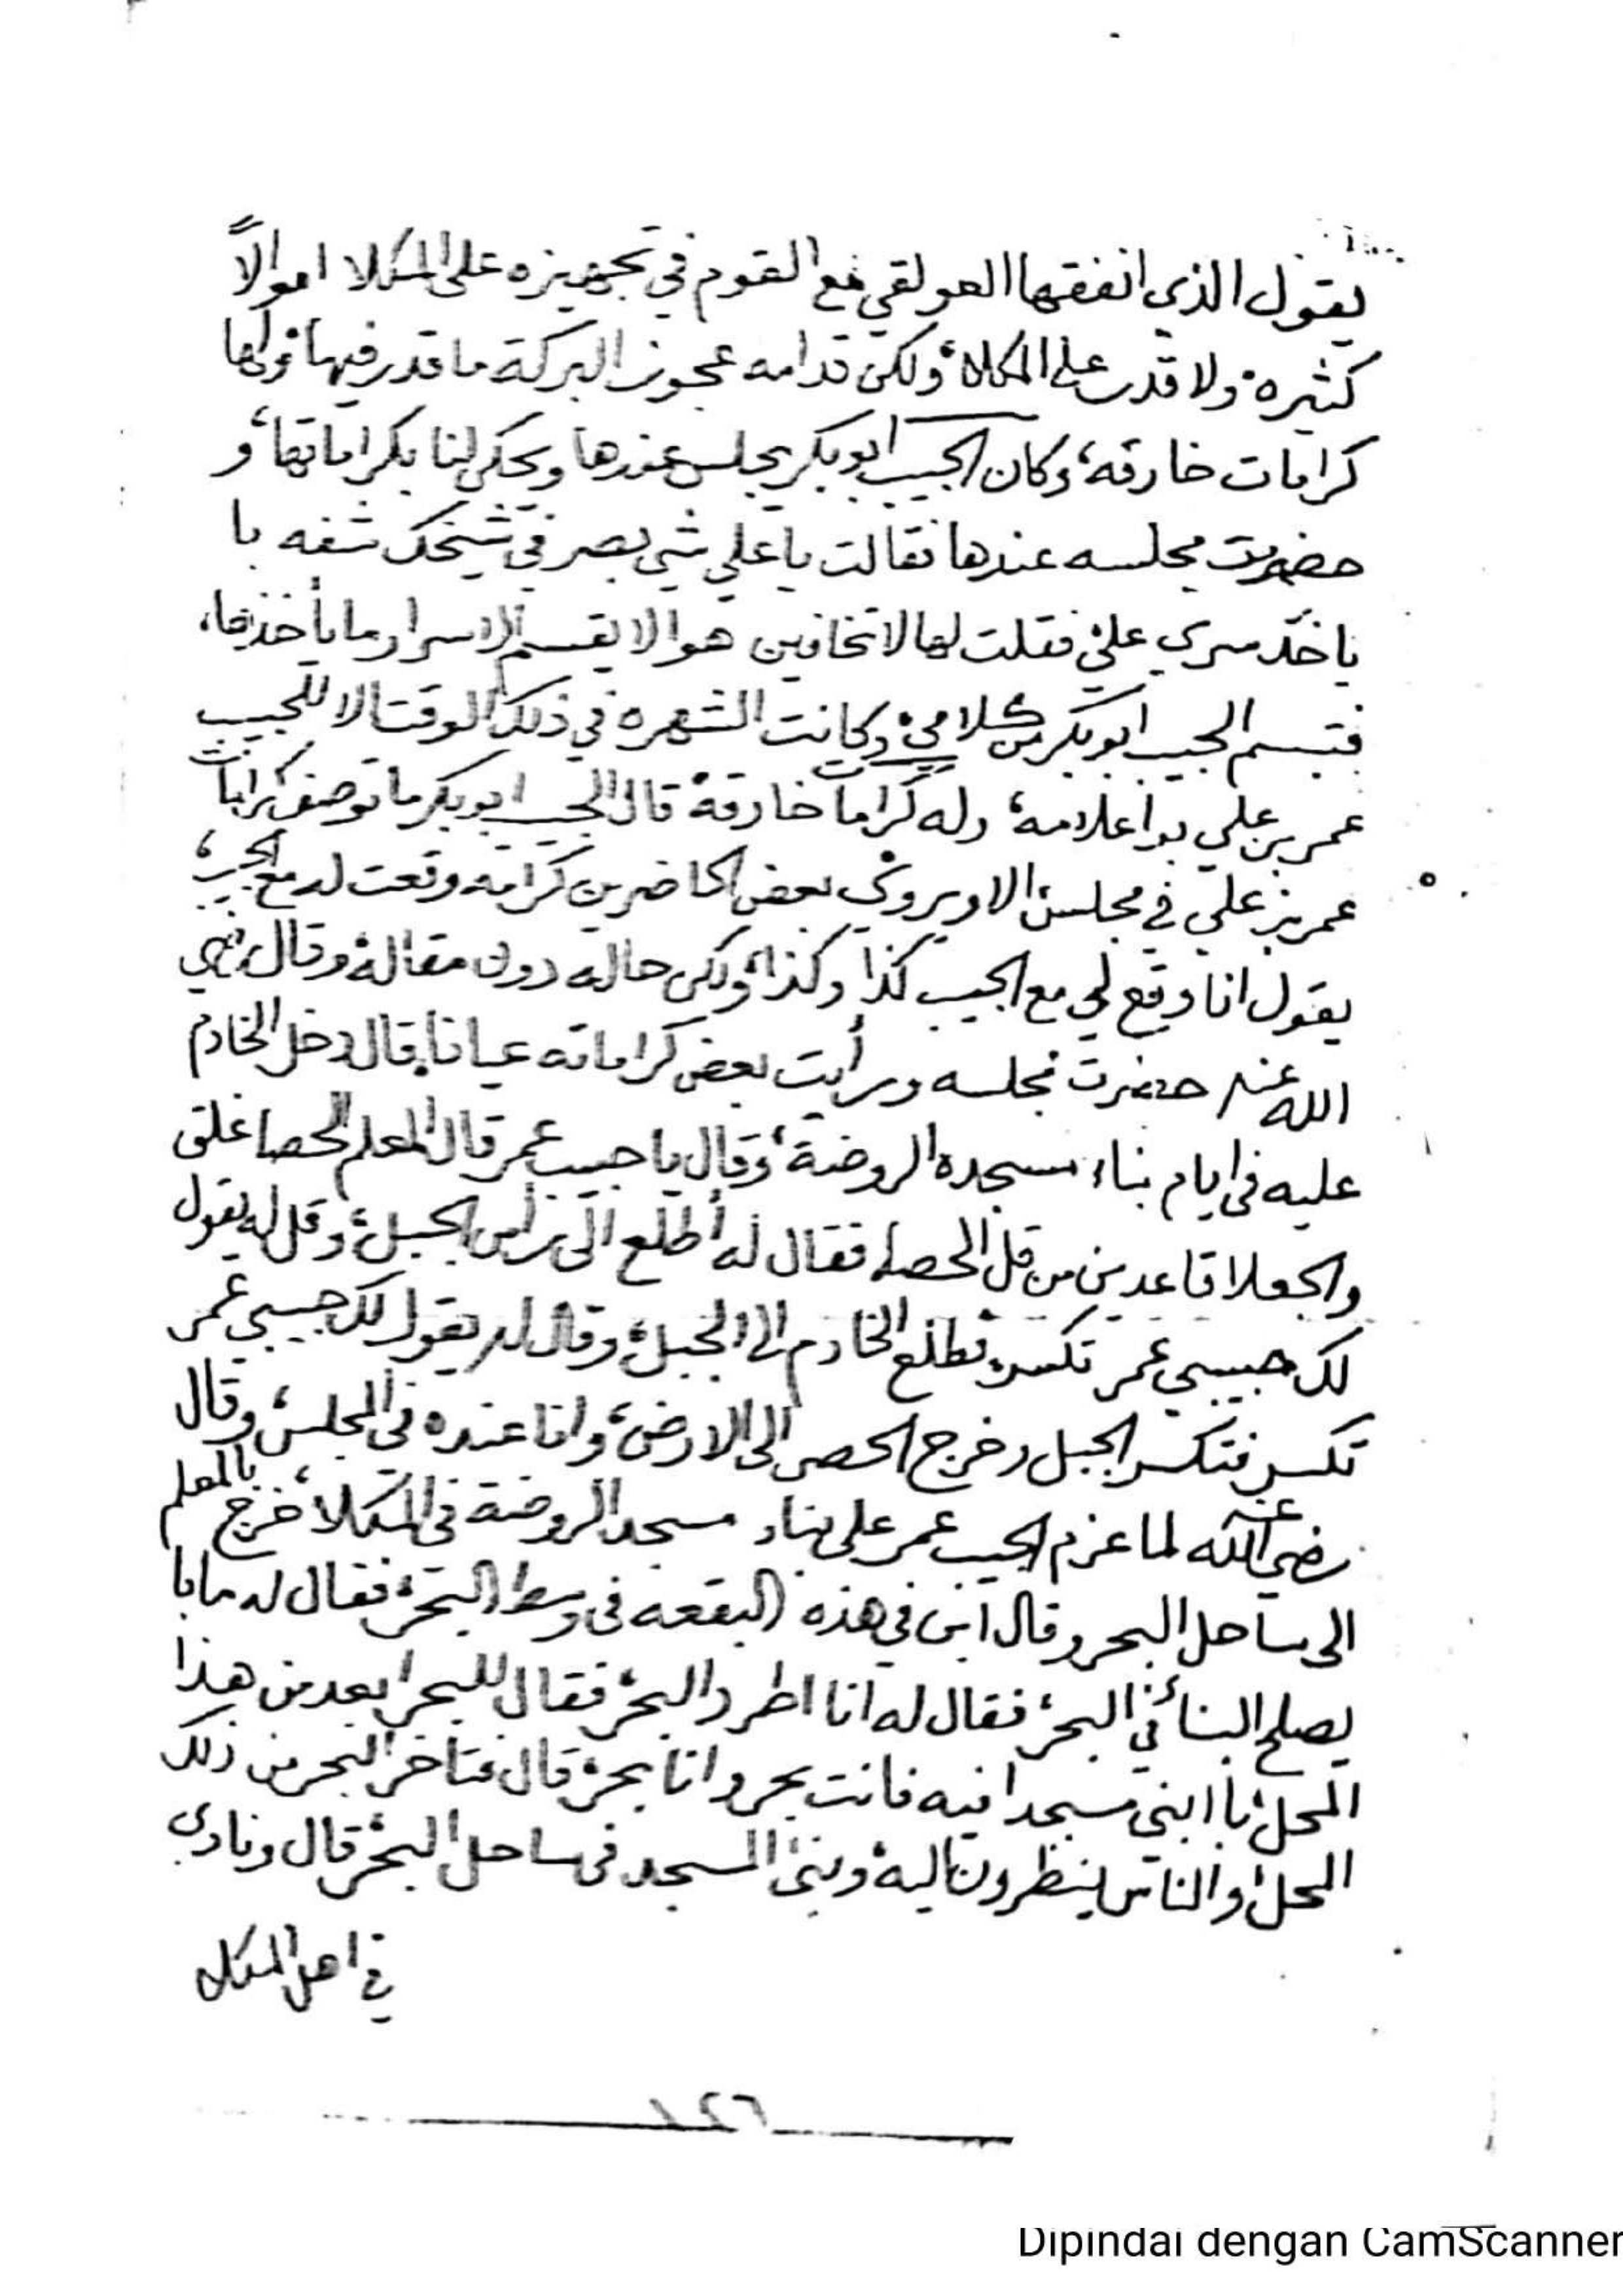 يقول الذي انفقها العولقي مع القوم في تجهيزه على المكلا اموالاً
كثيره ولا قدر على المكلا ولكن قدامه عجوز البركة ما قدر فيها ولها
كرامات خارقه، وكان الحبيب ابوبكر يجلس عندها ويحكي لنا بكراماتها، و
حضرت مجلسه عندها فقالت يا علي شي بصر في شيخك شفه با
ياخذ سري علي فقلت لها لا تخافين هو الا يقسم الاسرار ما يأخذها،
فتبسم الحبيب ابوبكر من كلامي، وكانت الشهره في ذلك الوقت الا للحبيب
عمر بن علي بواعلامه، وله كرامات خارقة قال الحبيب ابوبكر ما توصف كرامات
عمر بن علي في مجلس الا ويروي بعض الحاضرين كرامه وقعت له مع الحبيب،
يقول انا وقع لي مع الحبيب كذا وكذا ولكن حاله دون مقاله، وقال رضي
الله عنه حضرت مجلسه ورأيت بعض كراماته عيانا، قال دخل الخادم
عليه في ايام بناء مسجده الروضة، وقال يا حبيب عمر قال المعلم الحصا غلق
والجعلا قاعدين من قل الحصا، فقال له أطلع الى رأس الجبل، وقل له يقول
لك حبيبي عمر تكسر، فطلع الخادم الى الجبل، وقال له يقول لك حبيبي عمر
تكسر فتكسر الجبل وخرج الحصر الى الارض، وانا عنده في المجلس، وقال
رضي الله عنه لما عزم الحبيب عمر على بناء مسجد الروضة في المكلا، خرج بالمعلم
الى ساحل البحر وقال ابن في هذه البقعه في وسط البحر، فقال له ما با
يصلح البناء في البحر، فقال له انا اطرد البحر، فقال للبحر ابعد من هذا
المحل، با ابني مسجدا فيه فانت بحر وانا بحر، قال فتاخر البحر من ذلك
المحل، والناس ينظرون اليه، وبنى المسجد في ساحل البحر، قال ونادى
في اهل المكلا
١٤٦
Dipindai dengan CamScanner